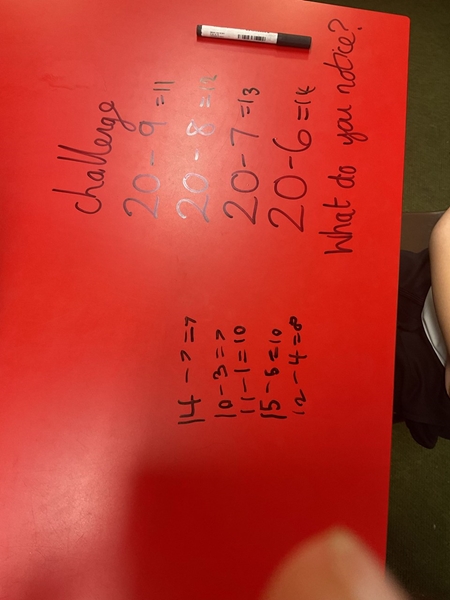 Challenge
20 - 9 = 11
20 - 8 = 12
20 - 7 = 13
20 - 6 = 14
What do you notice?
14 - 7 = 7
10 - 3 = 7
11 - 1 = 10
15 - 5 = 10
12 - 4 = 8